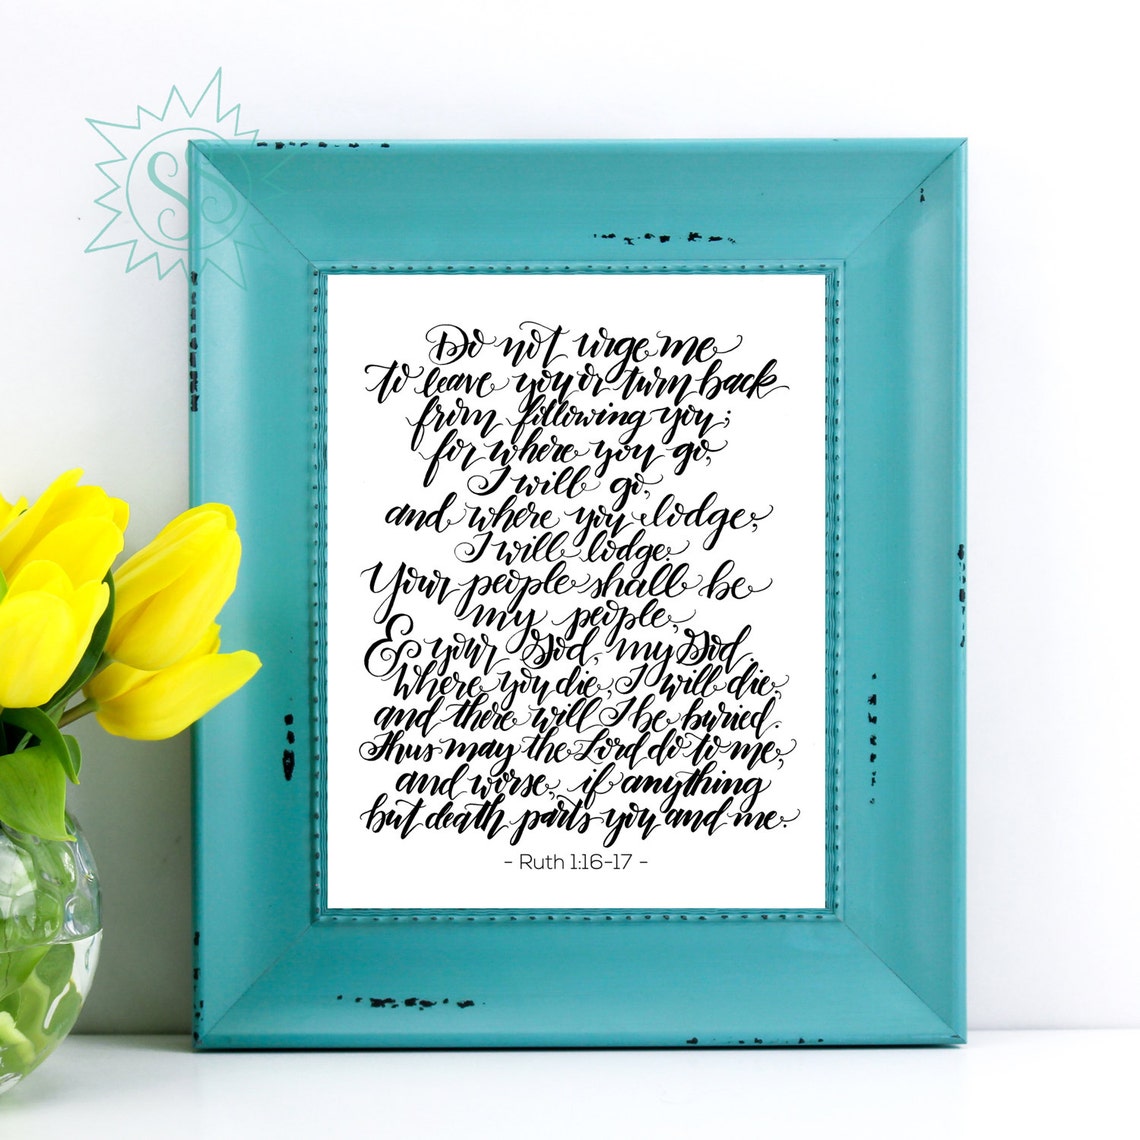 Do not urge me
to leave you or turn back
from following you;
for where you go,
I will go,
and where you lodge,
I will lodge.
Your people shall be
my people,
& your God, my God
Where you die, I will die,
and there will I be buried.
Thus may the Lord do to me,
and worse, if anything
but death parts you and me.
- Ruth 1:16-17 -